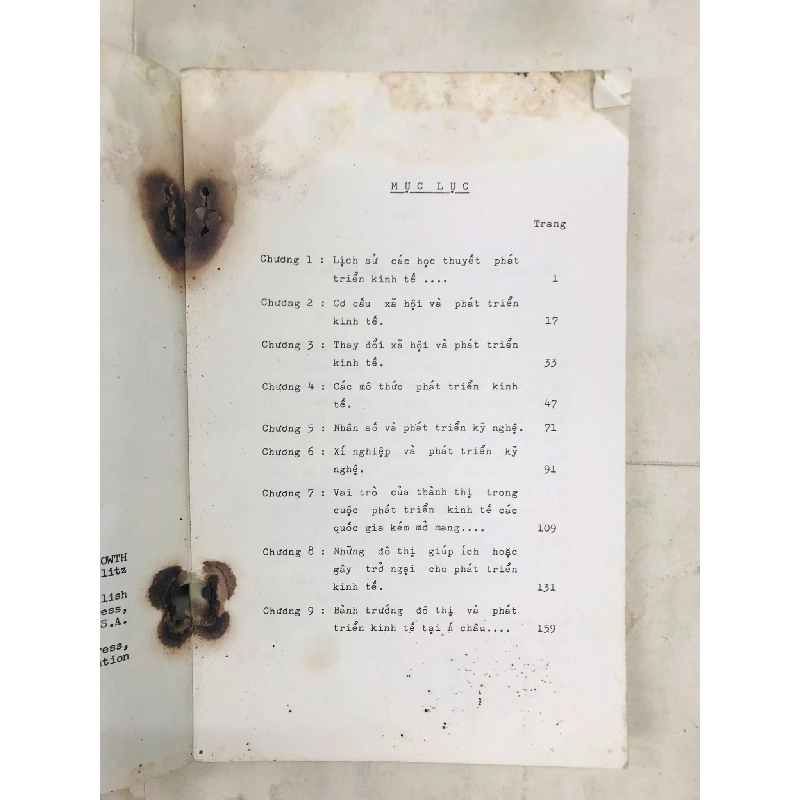 OWTH
litz
lish
ess,
S.A.
ress,
ation
MỤC LỤC
Trang
Chương 1 : Lịch sử các học thuyết phát
triển kinh tế .... 1
Chương 2 : Cơ cấu xã hội và phát triển
kinh tế. 17
Chương 3 : Thay đổi xã hội và phát triển
kinh tế. 33
Chương 4 : Các mô thức phát triển kinh
tế. 47
Chương 5 : Nhân số và phát triển kỹ nghệ. 71
Chương 6 : Xí nghiệp và phát triển kỹ
nghệ. 91
Chương 7 : Vai trò của thành thị trong
cuộc phát triển kinh tế các
quốc gia kém mở mang.... 109
Chương 8 : Những đô thị giúp ích hoặc
gây trở ngại cho phát triển
kinh tế. 131
Chương 9 : Bành trướng đô thị và phát
triển kinh tế tại Á châu.... 159